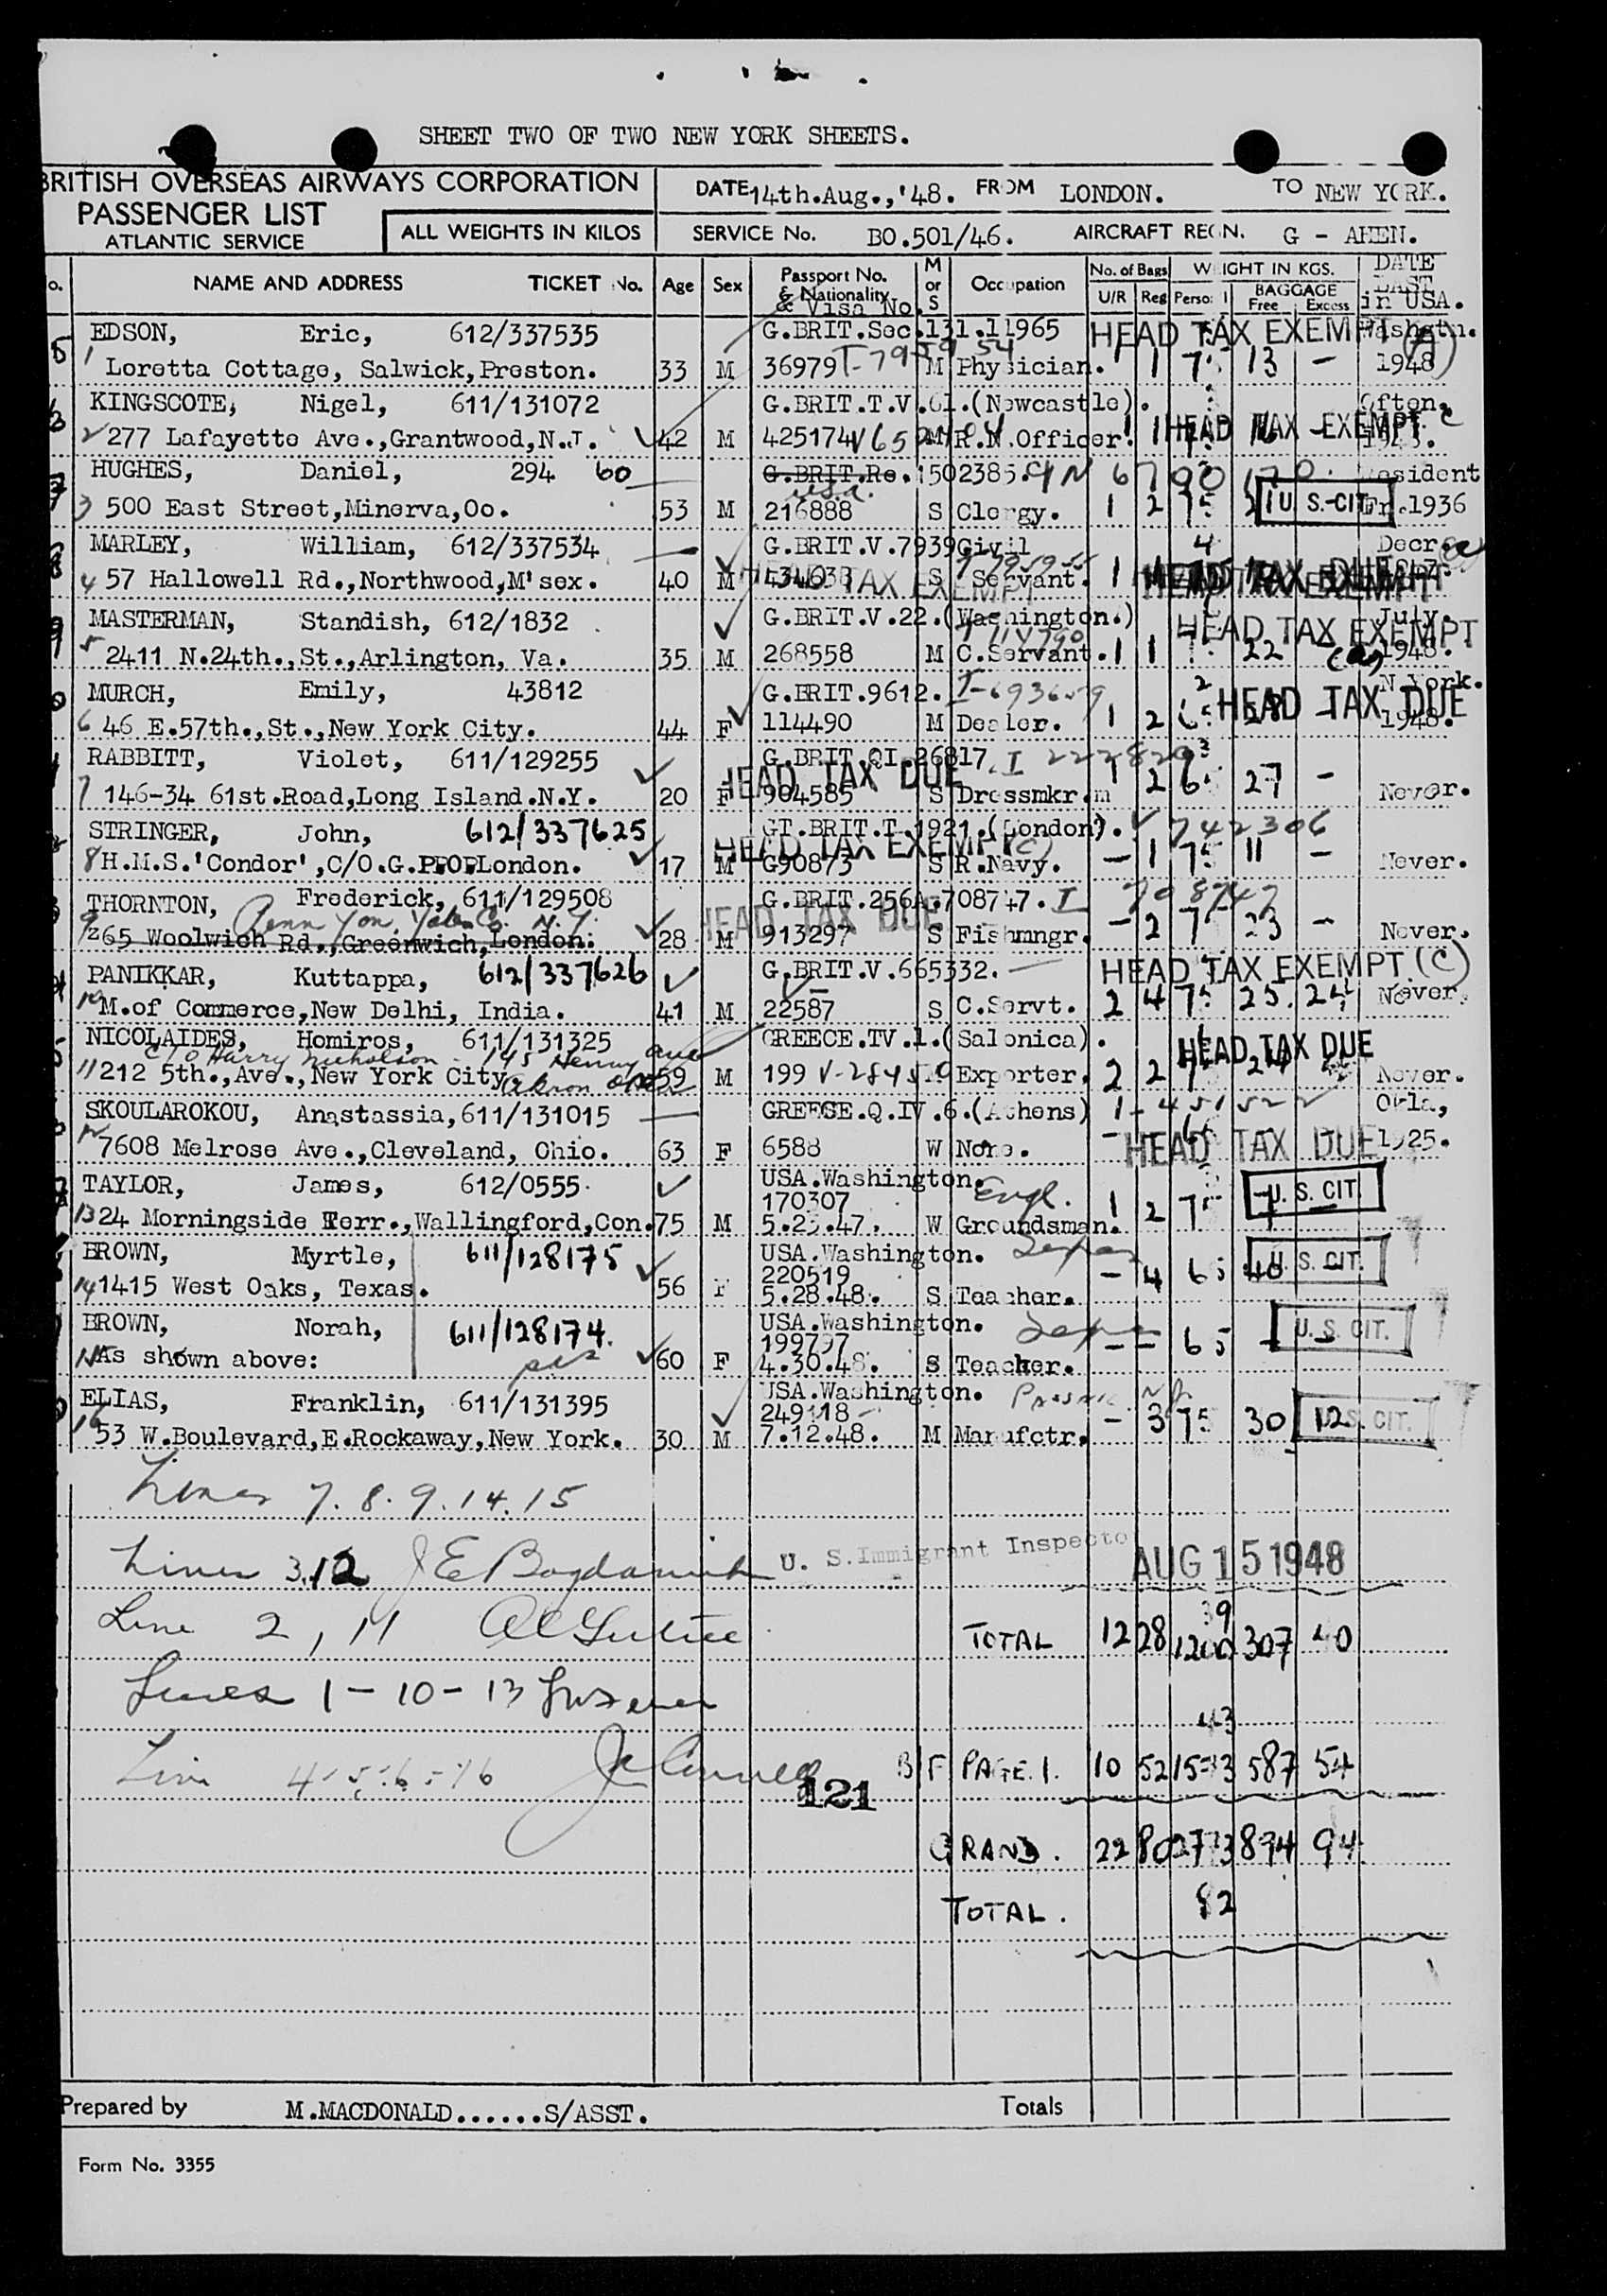 SHEET TWO OF TWO NEW YORK SHEETS.
BRITISH OVERSEAS AIRWAYS CORPORATION
PASSENGER LIST
ATLANTIC SERVICE
ALL WEIGHTS IN KILOS
DATE 14th.Aug.,'48. FROM LONDON. TO NEW YORK.
SERVICE No. BO.501/46. AIRCRAFT REGN. G - AHEN.
NAME AND ADDRESS TICKET No. Age Sex Passport No. & Nationality & Visa No. M or S Occupation No. of Bags U/R Reg WEIGHT IN KGS. Personl BAGGAGE Free Excess DATE LAST in USA.
EDSON, Eric, 612/337535 G.BRIT.Sec.131.11965 HEAD TAX EXEMPT (A) Washgtn.
1 Loretta Cottage, Salwick,Preston. 33 M 36979 M Physician. 1 1 7 13 - 1948
KINGSCOTE, Nigel, 611/131072 G.BRIT.T.V.61.(Newcastle). Often.
2 277 Lafayette Ave.,Grantwood,N.J. 42 M 425174 M R.N.Officer. 1 1 HEAD TAX EXEMPT C
HUGHES, Daniel, 294 60 G.BRIT.Re.1502385. CIN 6700170. Resident
3 500 East Street,Minerva,Oo. 53 M 216888 U.S.a. S Clergy. 1 2 75 U. S.-CIT. 1936
MARLEY, William, 612/337534 G.BRIT.V.7939 Civil Decr.
4 57 Hallowell Rd.,Northwood,M'sex. 40 M HEAD TAX EXEMPT S Servant. 1 HEAD TAX EXEMPT
MASTERMAN, Standish, 612/1832 G.BRIT.V.22.(Washington.) HEAD TAX EXEMPT July.
5 2411 N.24th.,St.,Arlington, Va. 35 M 268558 M C.Servant. 1 1 22 1948.
MURCH, Emily, 43812 G.BRIT.9612. I-693659 HEAD TAX DUE N.York.
6 46 E.57th.,St.,New York City. 44 F 114490 M Dealer. 1 2 1948.
RABBITT, Violet, 611/129255 G.BRIT.QI.26817 I 222829
7 146-34 61st.Road,Long Island.N.Y. 20 F HEAD TAX DUE 904585 S Dressmkr. 1 2 6 27 - Never.
STRINGER, John, 612/337625 GT.BRIT.T.1921.(London). V 742306
8 H.M.S.'Condor',C/O.G.P.O.London. 17 M HEAD TAX EXEMPT (C) G90873 S R.Navy. - 1 75 11 - Never.
THORNTON, Frederick, 611/129508 G.BRIT.256A.708747. I 708747
Penn Yan, Yates Co. N.Y.
9 265 Woolwich Rd.,Greenwich,London. 28 M HEAD TAX DUE 913297 S Fishmngr. - 2 7 23 - Never.
PANIKKAR, Kuttappa, 612/337626 G.BRIT.V.665332. HEAD TAX EXEMPT (C)
10 M.of Commerce,New Delhi, India. 41 M 22587 S C.Servt. 2 4 75 25. 24 Never.
NICOLAIDES, Homiros, 611/131325 GREECE.TV.1.(Salonica). HEAD TAX DUE
c/o Harry Nicholson - 145 Henry ave
11 212 5th.,Ave.,New York City Akron Ohio 59 M 199 Exporter. 2 2 Never.
SKOULAROKOU, Anastassia, 611/131015 GREECE.Q.IV.6.(Athens) I-451522 Okla,
12 7608 Melrose Ave.,Cleveland, Ohio. 63 F 6588 W None. - HEAD TAX DUE 1925.
TAYLOR, James, 612/0555. USA.Washington. Engl. U. S. CIT.
170307
13 24 Morningside Terr.,Wallingford,Con. 75 M 5.23.47. W Groundsman. 1 2 75
BROWN, Myrtle, 611/128175 USA.Washington. U. S. CIT.
220519
14 1415 West Oaks, Texas. 56 F 5.28.48. S Teacher. - 4 65 40
BROWN, Norah, 611/128174. USA.Washington. U. S. CIT.
199797
15 As shown above: 60 F 4.30.48. S Teacher. - - 65 - -
ELIAS, Franklin, 611/131395 USA.Washington. Passaic N.J.
249118
16 53 W.Boulevard,E.Rockaway,New York. 30 M 7.12.48. M Manufctr. - 3 75 30 12 U. S. CIT.
Lines 7. 8. 9. 14. 15
Lines 3.12 U. S. Immigrant Inspector AUG 15 1948
Line 2, 11 TOTAL 12 28 39 1200 307 40
Lines 1 - 10 - 13
43
Line 4-5-6-16 121 B/F PAGE. 1. 10 52 1533 587 54
GRAND. 22 80 2733 894 94
TOTAL. 82
Prepared by M.MACDONALD......S/ASST. Totals
Form No. 3355